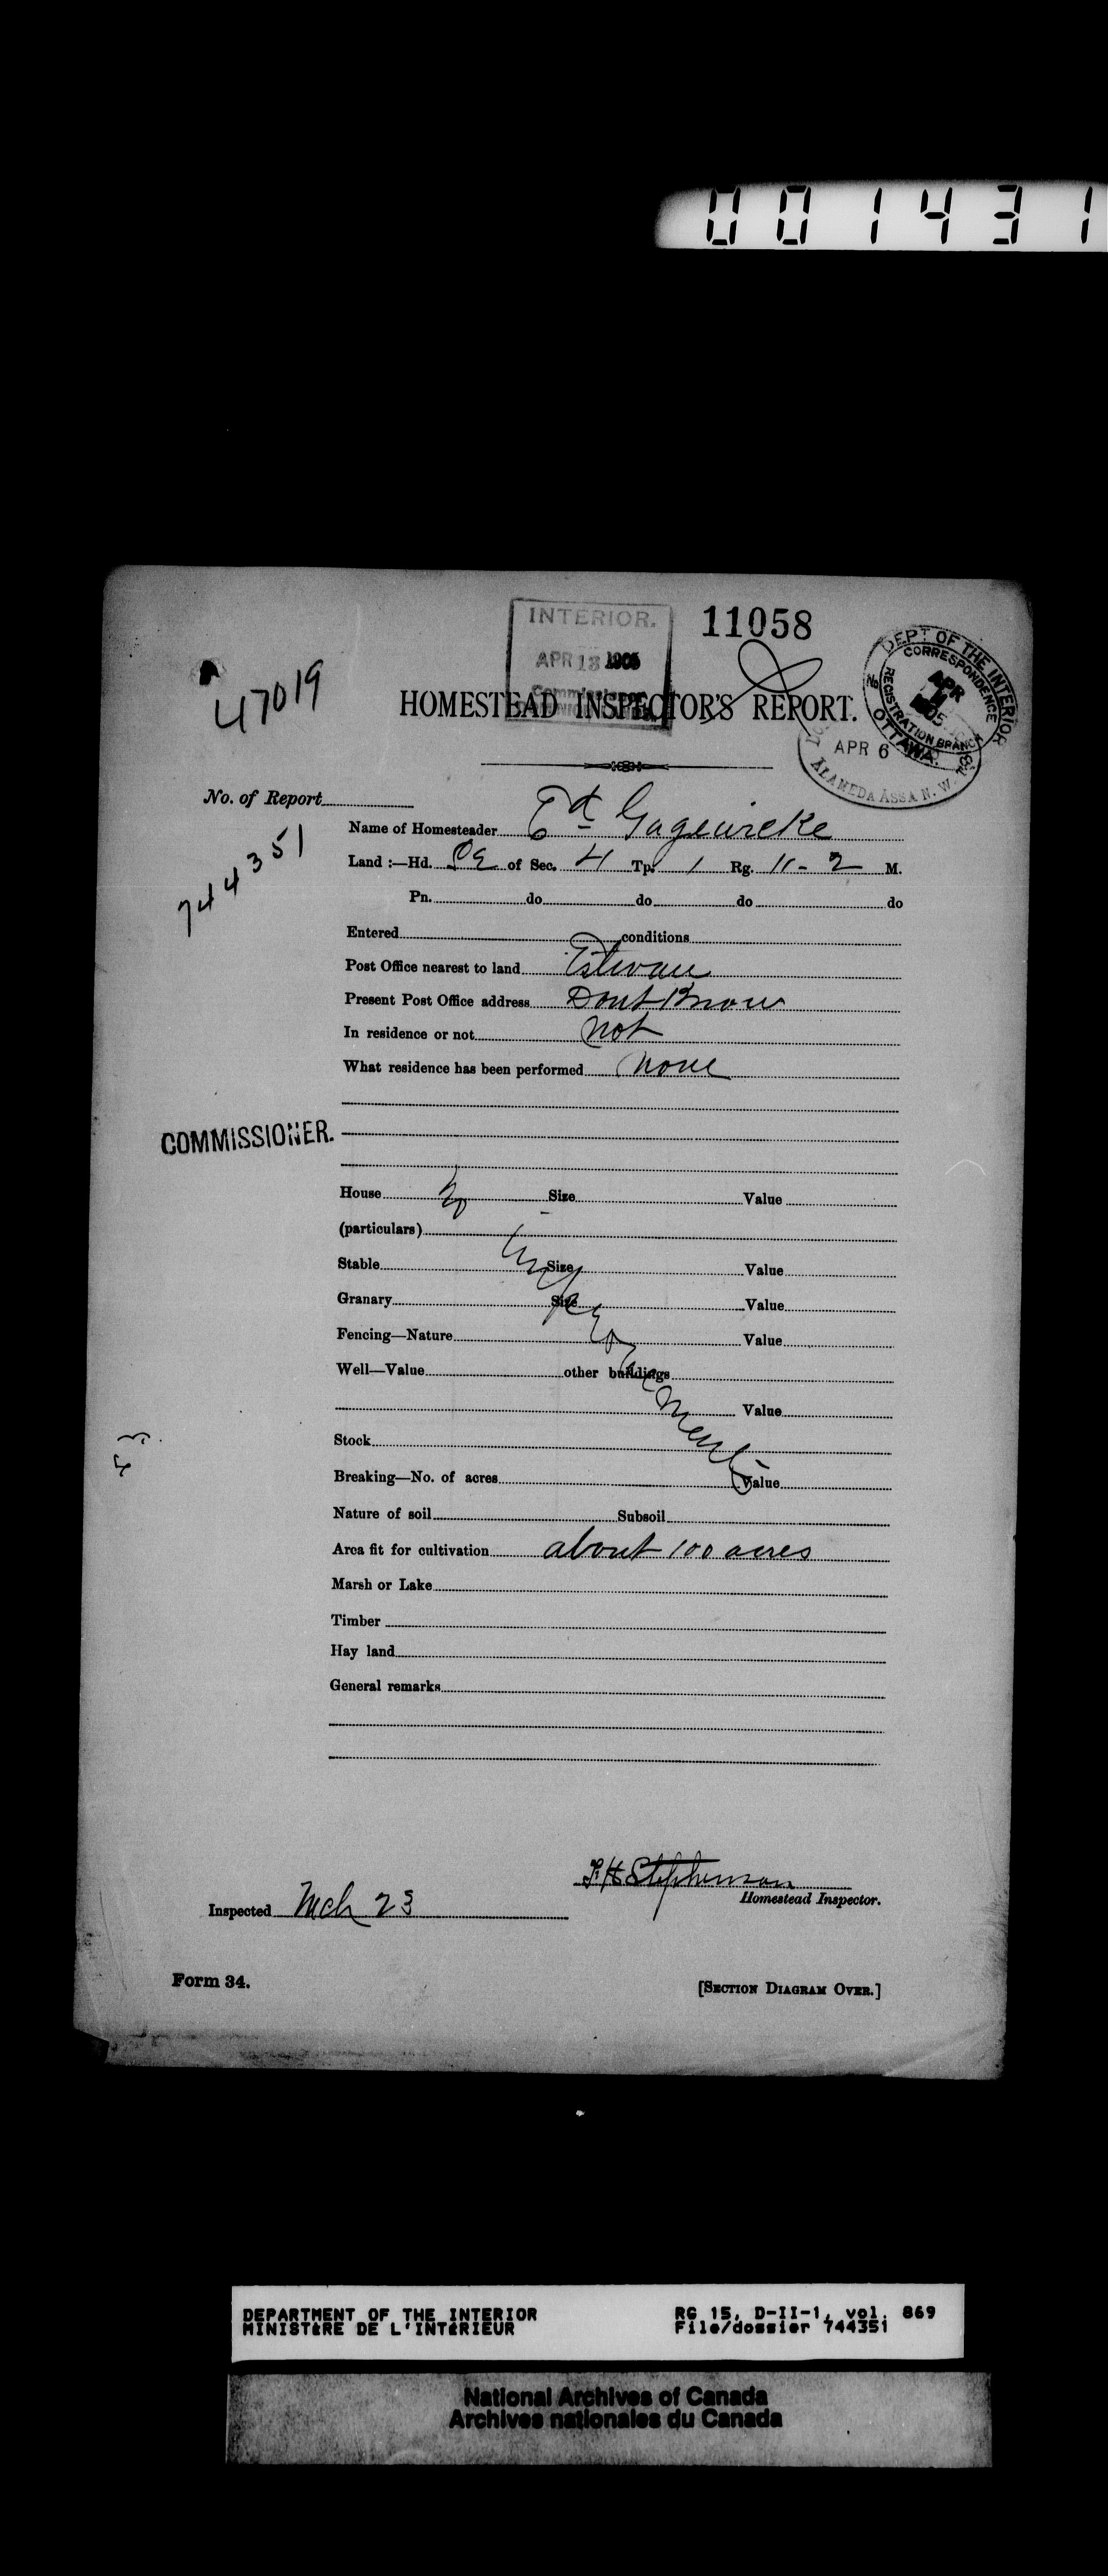 001431
INTERIOR.
APR 13 1905
Commissioner
11058
DEPT OF THE INTERIOR
CORRESPONDENCE
No
APR
1905
REGISTRATION BRANCH
OTTAWA
APR 6
ALAMEDA ASSA N. W. T.
47019
HOMESTEAD INSPECTOR'S REPORT.
No. of Report
744351
Name of Homesteader Ed Gagewicke
Land :—Hd. SE of Sec. 4 Tp. 1 Rg. 11- 2 M.
Pn. do do do do
Entered conditions
Post Office nearest to land Estevan
Present Post Office address Dont Know
In residence or not not
What residence has been performed none
COMMISSIONER.
House No Size Value
(particulars)
improvements
Stable Size Value
Granary Size Value
Fencing—Nature Value
Well—Value other buildings
Value
Stock
Breaking—No. of acres Value
Nature of soil Subsoil
Area fit for cultivation about 100 acres
Marsh or Lake
Timber
Hay land
General remarks
F H Stephenson
Homestead Inspector.
Inspected Mch 23
Form 34.
[SECTION DIAGRAM OVER.]
DEPARTMENT OF THE INTERIOR RG 15, D-II-1, vol. 869
MINISTÈRE DE L'INTÉRIEUR File/dossier 744351
National Archives of Canada
Archives nationales du Canada